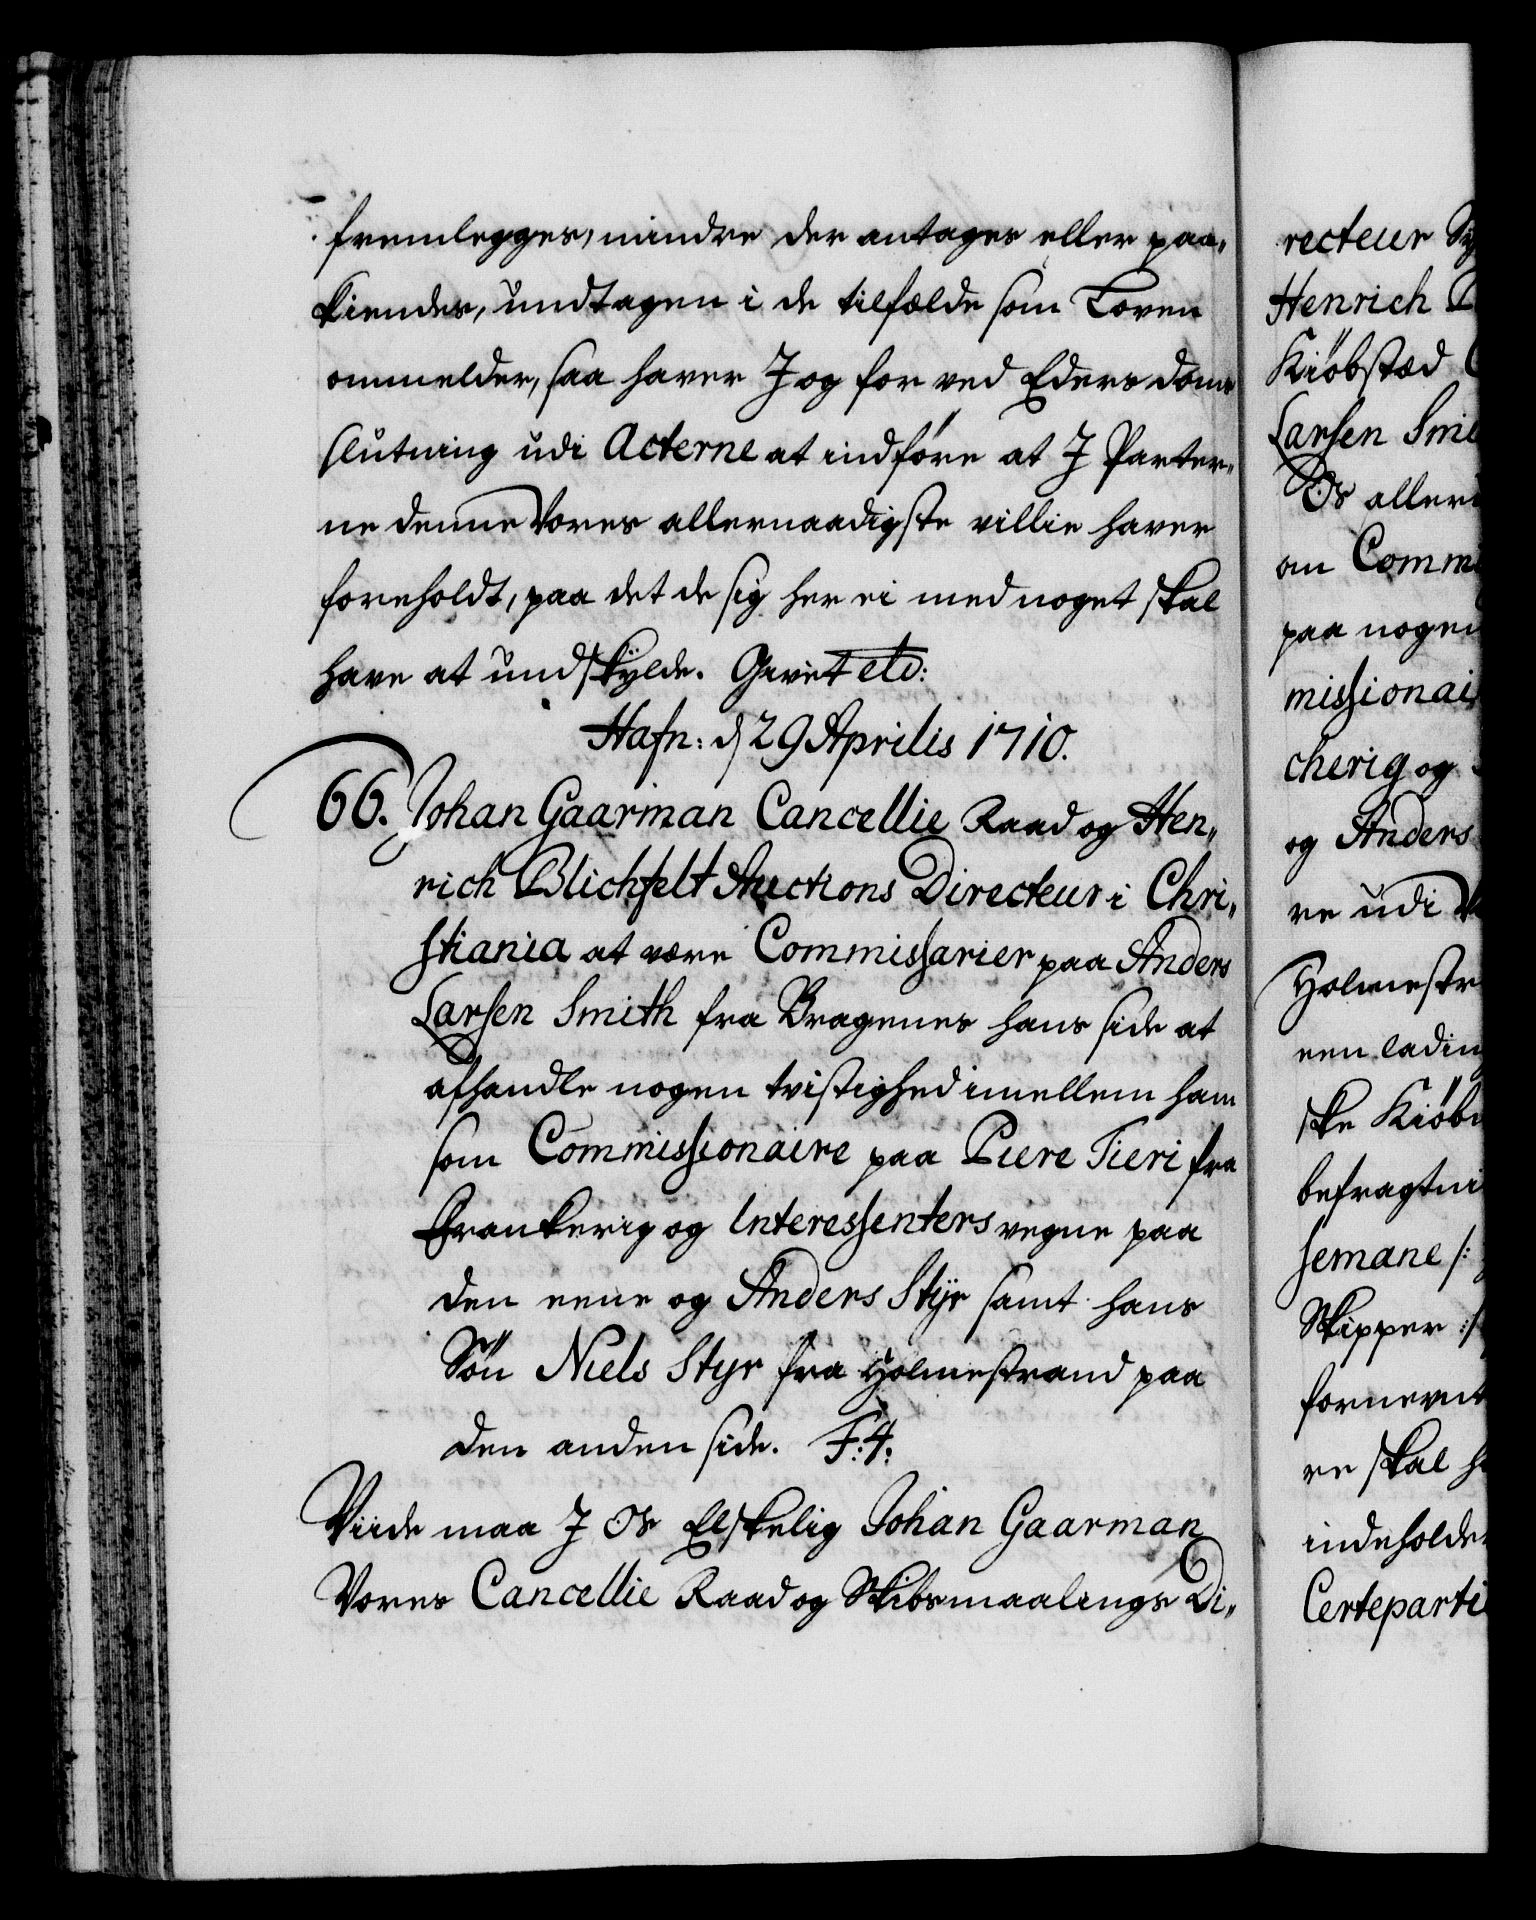 fremlegges, mindre der antages eller paa„
kiendes, undtagen i de tilfælde som Loven
ommelder, saa haver I og for ved Eders doms
slutning udi Acterne at indføre at I Parter„
ne denne Vores allernaadigste villie haver
foreholdt, paa det de sig her ei med noget skal
have at undskylde. Givet etc:
Hafn: d 29 Aprilis 1710.
66. Johan Gaarman Cancellie Raad og Hen„
rich Blichfelt Auctions Directeur i Chri„
stiania at være Commissarier paa Anders
Larsen Smith fra Bragenes hans side at
afhandle nogen tvistighed imellem ham
som Commissionaire paa Piere Tieri fra
Frankerig og Interessenters vegne paa
den eene og Anders Styr samt hans
Søn Niels Styr fra Holmestrand paa
den anden side. F: 4:
Viide maa I Os Elskelig Johan Gaarman
Vores Cancellie Raad og Skibsmaalings Di„
recteur
Henrich
Kiøbstæd
Larsen Smi
Os aller
om Comm
paa nogen
missionai
cherig og
og Anders
re udi
Holmestr
een ladin
ske Kiøbm
befragtni
semane /:
Skipper :/
fornevnt
re skal h
indeholde
Certeparti